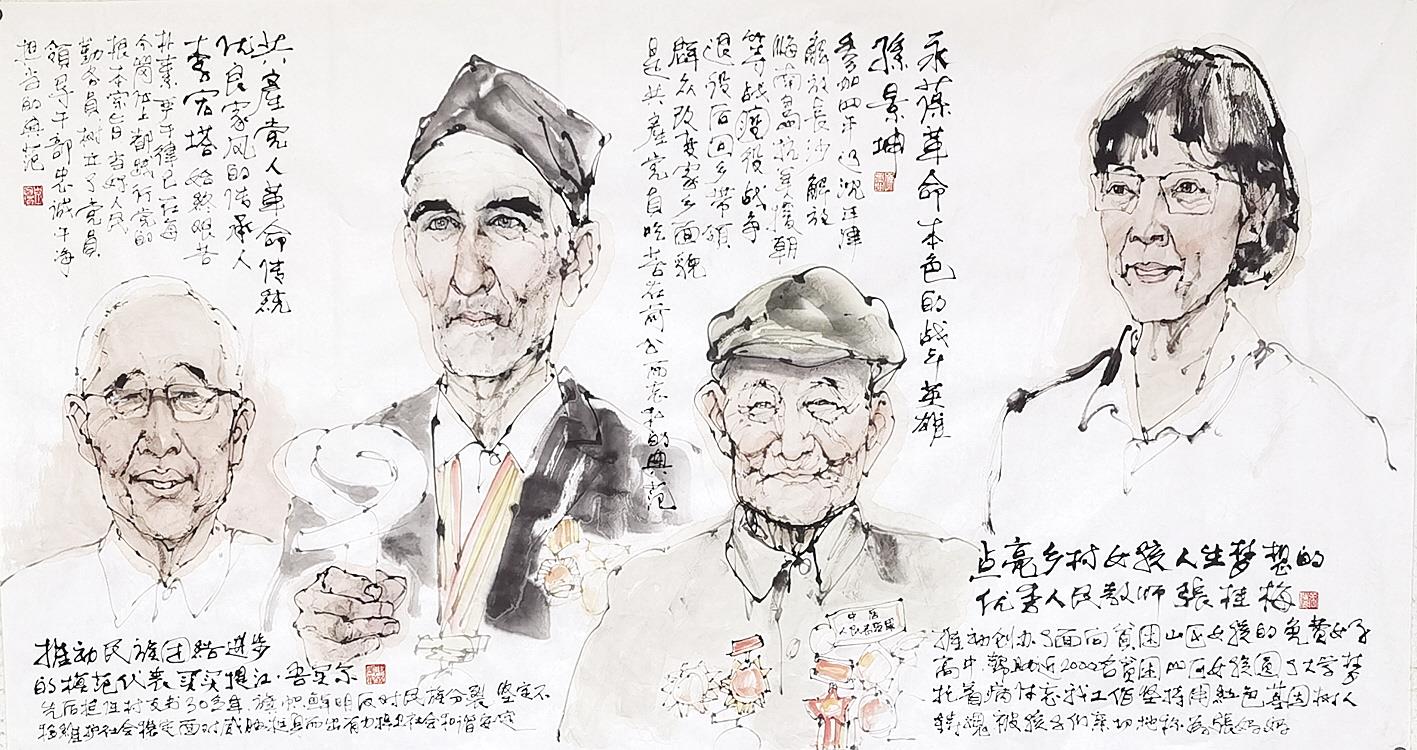 共產党人革命传統
优良家风的传承人
李宏塔 始終艰苦
朴素严于律己在每
个崗位上都践行党的
根本宗旨当好人民
勤务員树立了党員
領导干部忠诚干净
担当的典范
永葆革命本色的战斗英雄
孫景坤
参加四平辽沈平津
解放长沙解放
海南島抗美援朝
等战役战争
退役后回乡带領
群众改变家乡面貌
是共產党員吃苦在前公而忘私的典范
推动民族团结进步
的模范代表买买提江·吾买尔
先后担任村支书30多年旗帜鲜明反对民族分裂坚定不
移維护社会稳定面对威胁挺身而出有力捍卫社会和谐安定
点亮乡村女孩人生梦想的
优秀人民教师張桂梅
推动创办了面向貧困山区女孩的免费女子
高中帮助近2000名貧困山区女孩圆了大学梦
托着病体忘我工作坚持用紅色基因树人
铸魂被孩子们亲切地称为張妈妈